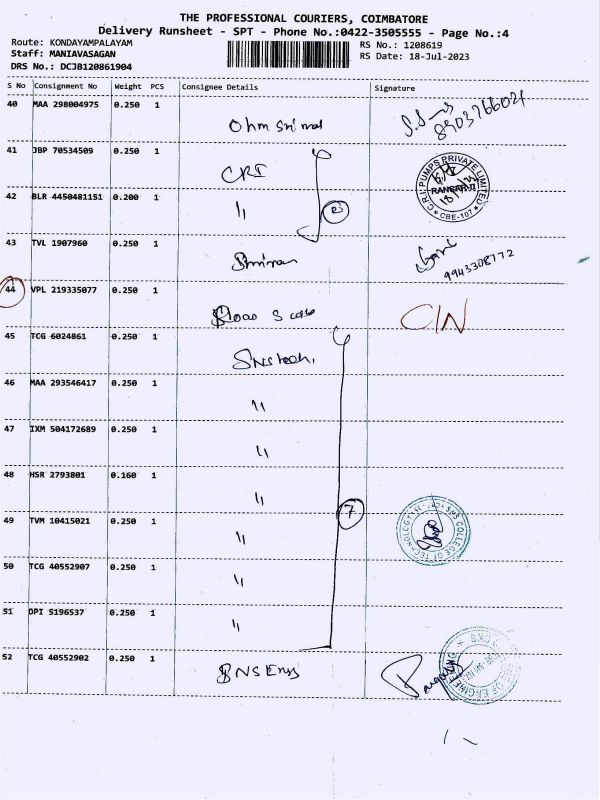 THE PROFESSIONAL COURIERS, COIMBATORE
Delivery Runsheet - SPT - Phone No.:0422-3505555 - Page No.:4
Route: KONDAYAMPALAYAM
RS No.: 1208619
Staff: MANIAVASAGAN
RS Date: 18-Jul-2023
DRS No.: DCJB120861904
S No Consignment No Weight PCS Consignee Details Signature
40 MAA 298004975 0.250 1
8903766021
41 JBP 70534509 0.250 1 CRI
C.R.I. PUMPS PRIVATE LIMITED
CBE-107
42 BLR 4450481151 0.200 1 "
43 TVL 1907960 0.250 1
9943308772
44 VPL 219335077 0.250 1 C/N
45 TCG 6024861 0.250 1 SNS tech,
46 MAA 293546417 0.250 1 "
47 IXM 504172689 0.250 1 "
48 HSR 2793801 0.160 1 "
7
49 TVM 10415021 0.250 1 "
SNS COLLEGE OF TECHNOLOGY
50 TCG 40552907 0.250 1 "
51 OPI 5196537 0.250 1 "
52 TCG 40552902 0.250 1 SNS Engg